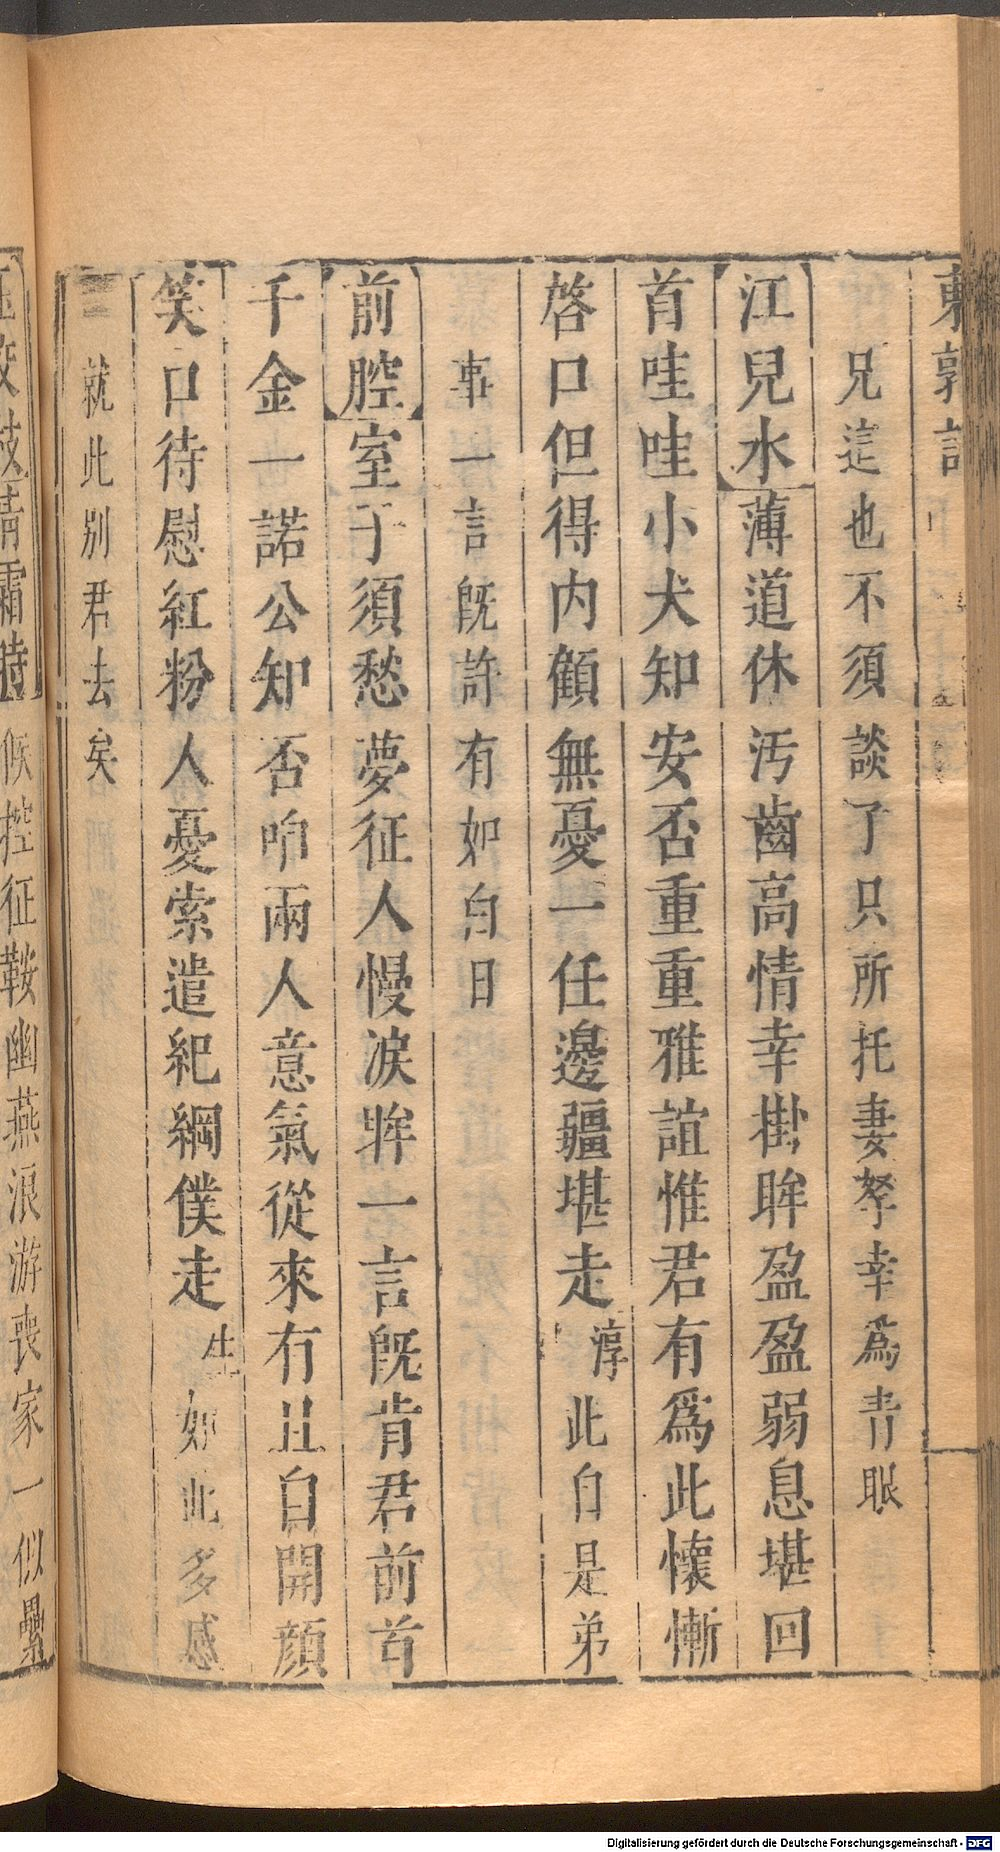 東郭記
兄這也不須談了只所托妻孥幸爲青眼
江兒水薄道休汚齒高情幸掛眸盈盈弱息堪回
首哇哇小犬知安否重重雅誼惟君有爲此懷慚
啓口但得内顧無憂一任邊疆堪走淳此自是弟
事一言旣許有如白日
前腔室于須愁夢征人慢淚眸一言旣肯君前首
千金一諾公知否咱兩人意氣從來有且自開顏
笑口待慰紅粉人憂索遣紀綱僕走生如此多感
就此別君去矣
候控征鞍幽燕浪游喪家一似纍
Digitalisierung gefördert durch die Deutsche Forschungsgemeinschaft - DFG